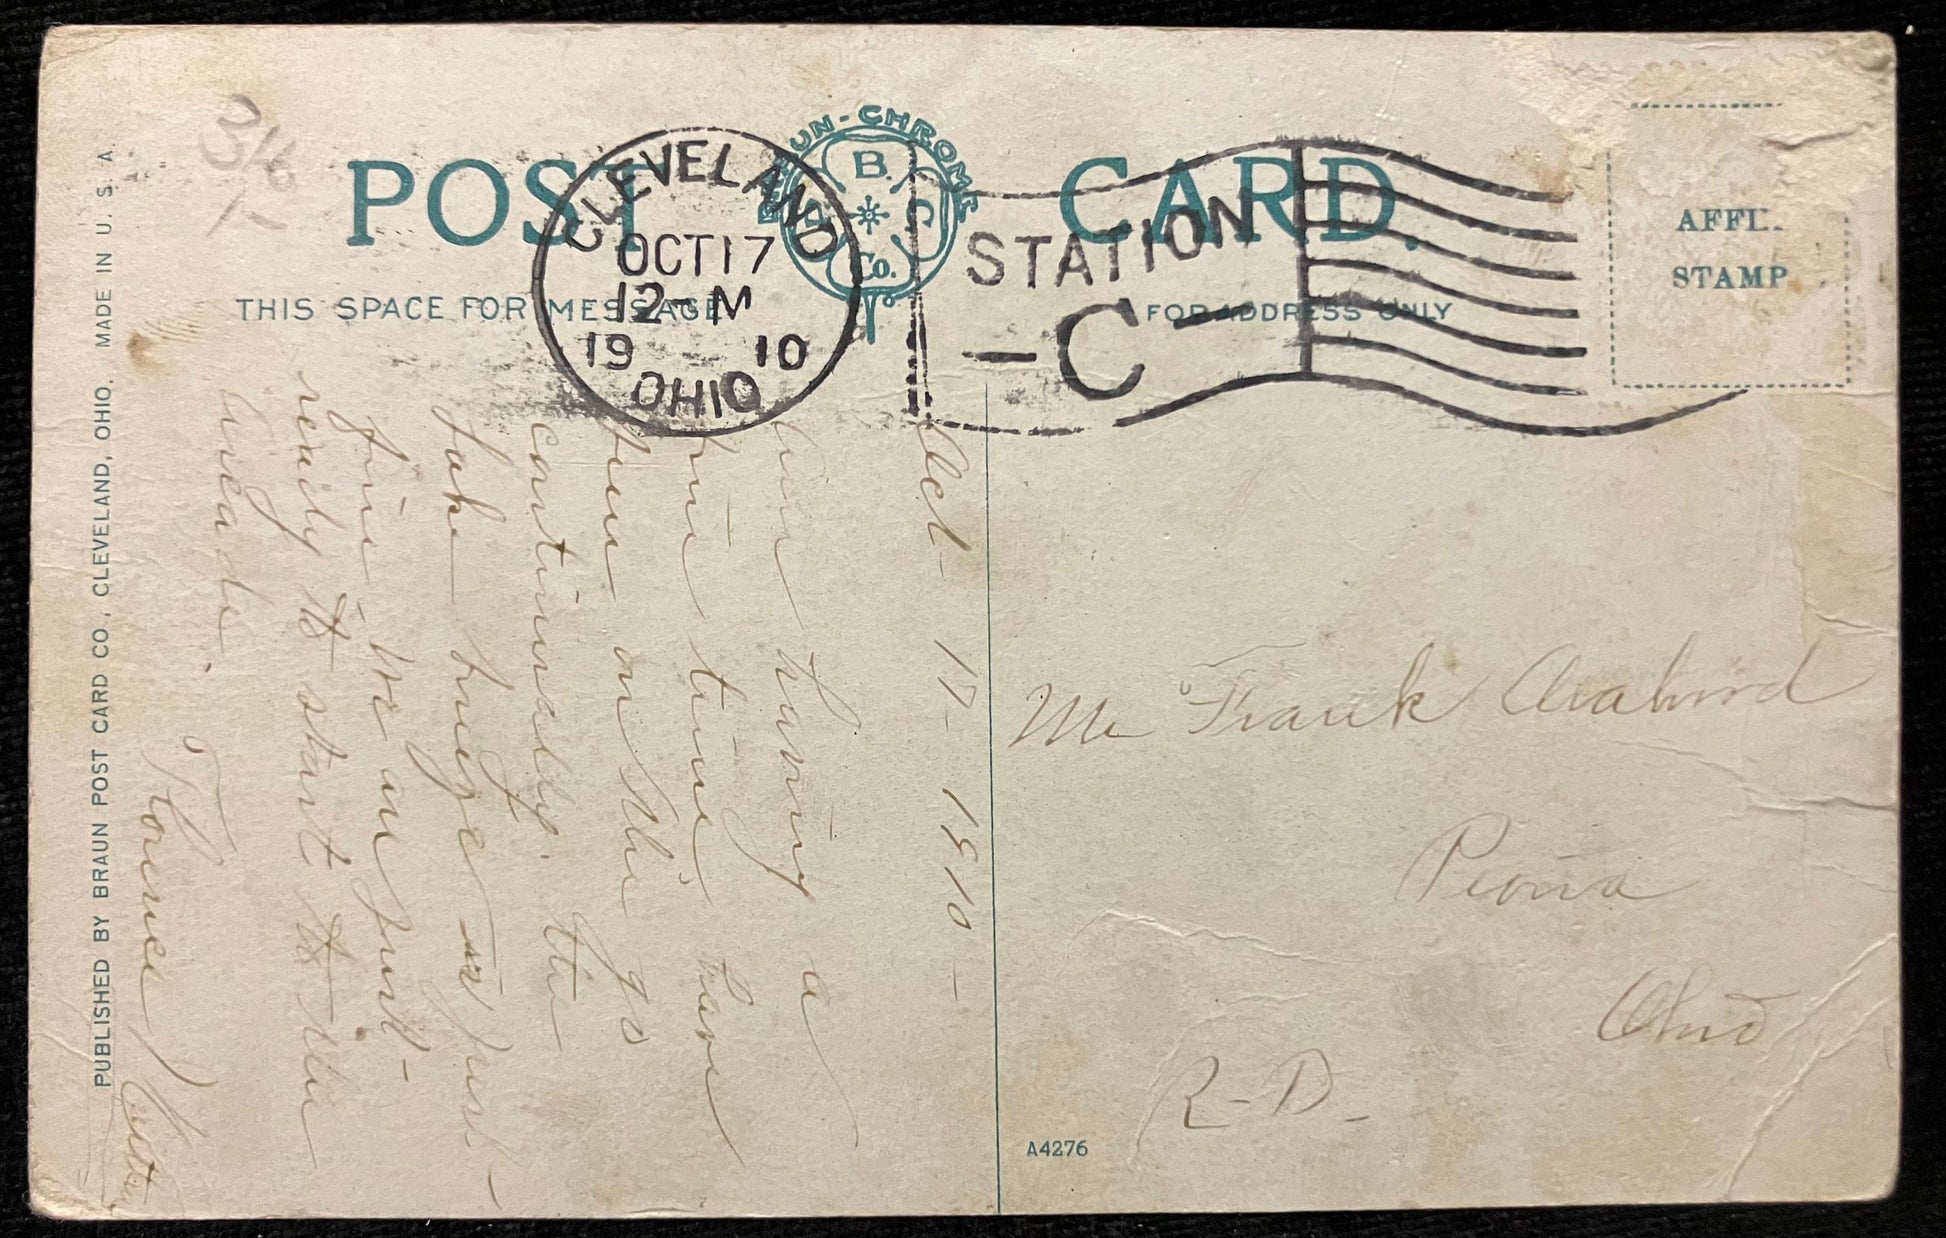 POST CARD.
BRAUN-CHROME
B. P. C. Co.
CLEVELAND
OCT 17
12- M
19 10
OHIO
STATION
-C
THIS SPACE FOR MESSAGE
FOR ADDRESS ONLY
AFFI..
STAMP
Oct- 17- 1910-
having a
fine time, have
been on the go
continually. the
Lake breeze is just-
fine. We are just-
ready to start to the
Arcade.
Florence
Mr Frank
Peoria
Ohio
R-D-
A4276
PUBLISHED BY BRAUN POST CARD CO., CLEVELAND, OHIO. MADE IN U. S. A.